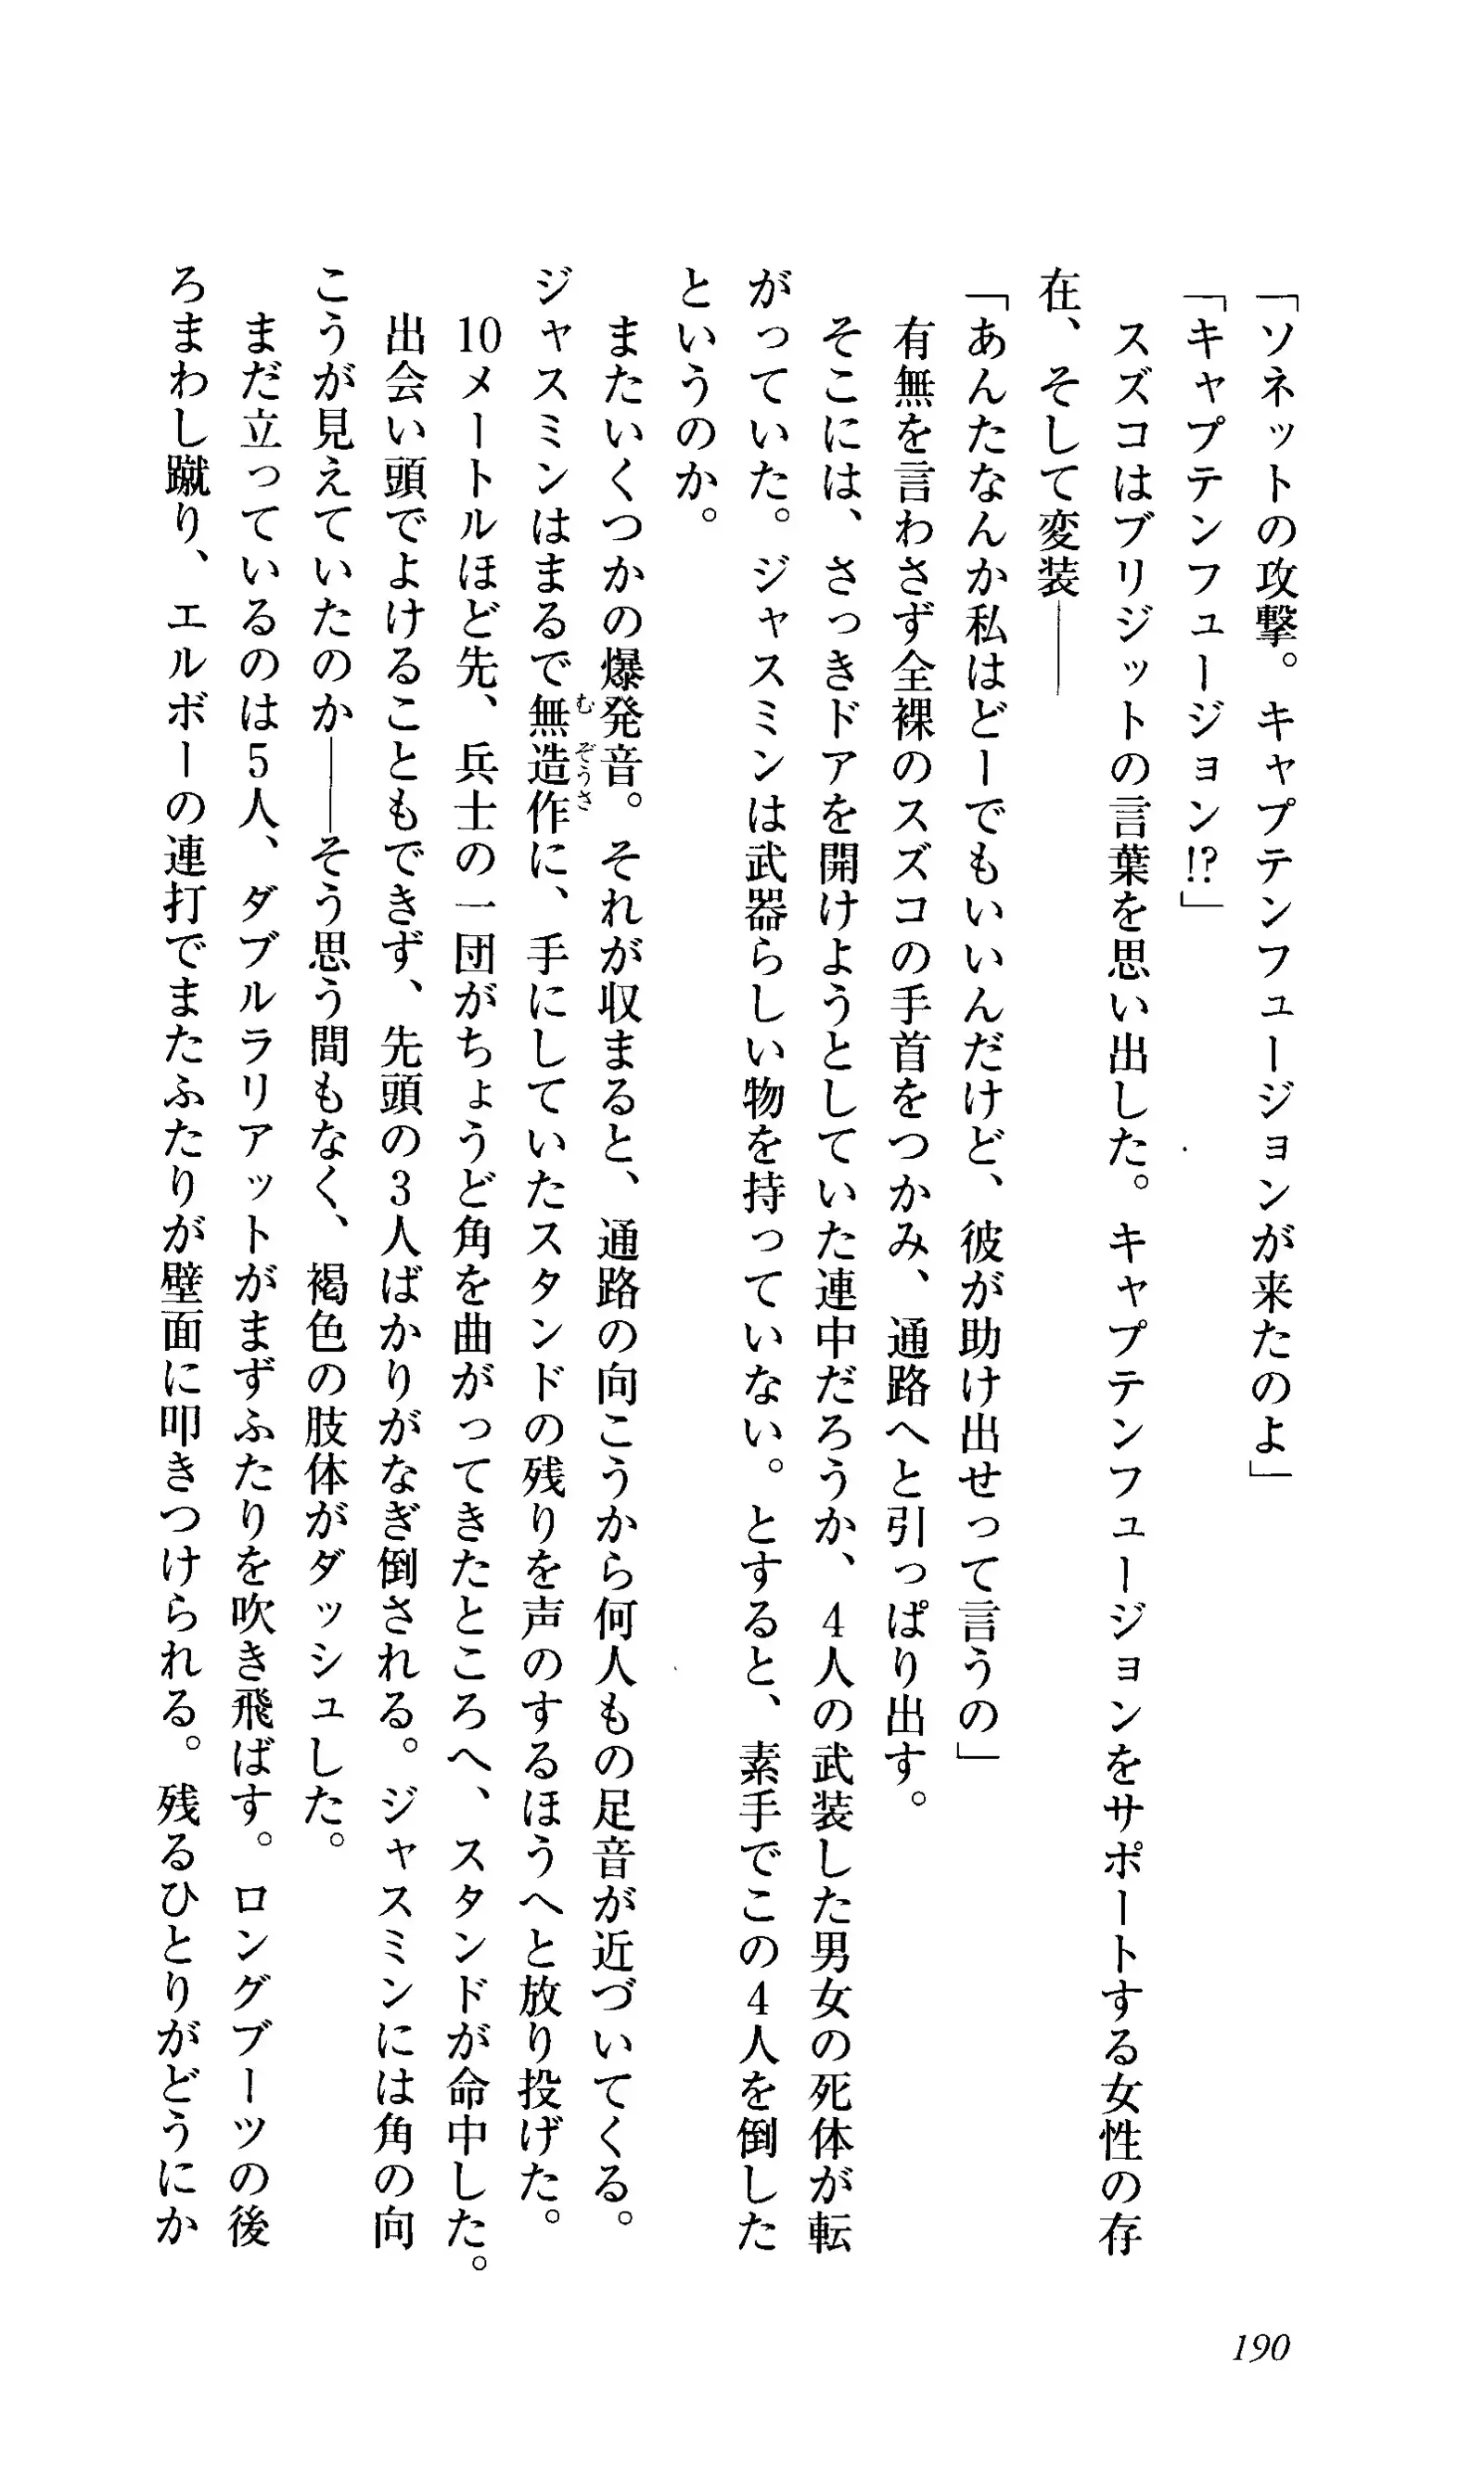 「ソネットの攻撃。キャプテンフュージョンが来たのよ」
「キャプテンフュージョン!?」
　スズコはブリジットの言葉を思い出した。キャプテンフュージョンをサポートする女性の存
在、そして変装――
「あんたなんか私はどーでもいいんだけど、彼が助け出せって言うの」
　有無を言わさず全裸のスズコの手首をつかみ、通路へと引っぱり出す。
　そこには、さっきドアを開けようとしていた連中だろうか、4人の武装した男女の死体が転
がっていた。ジャスミンは武器らしい物を持っていない。とすると、素手でこの4人を倒した
というのか。
　またいくつかの爆発音。それが収まると、通路の向こうから何人もの足音が近づいてくる。
ジャスミンはまるで無造作に、手にしていたスタンドの残りを声のするほうへと放り投げた。
むぞうさ
　10メートルほど先、兵士の一団がちょうど角を曲がってきたところへ、スタンドが命中した。
　出会い頭でよけることもできず、先頭の3人ばかりがなぎ倒される。ジャスミンには角の向
こうが見えていたのか――そう思う間もなく、褐色の肢体がダッシュした。
　まだ立っているのは5人、ダブルラリアットがまずふたりを吹き飛ばす。ロングブーツの後
ろまわし蹴り、エルボーの連打でまたふたりが壁面に叩きつけられる。残るひとりがどうにか
190